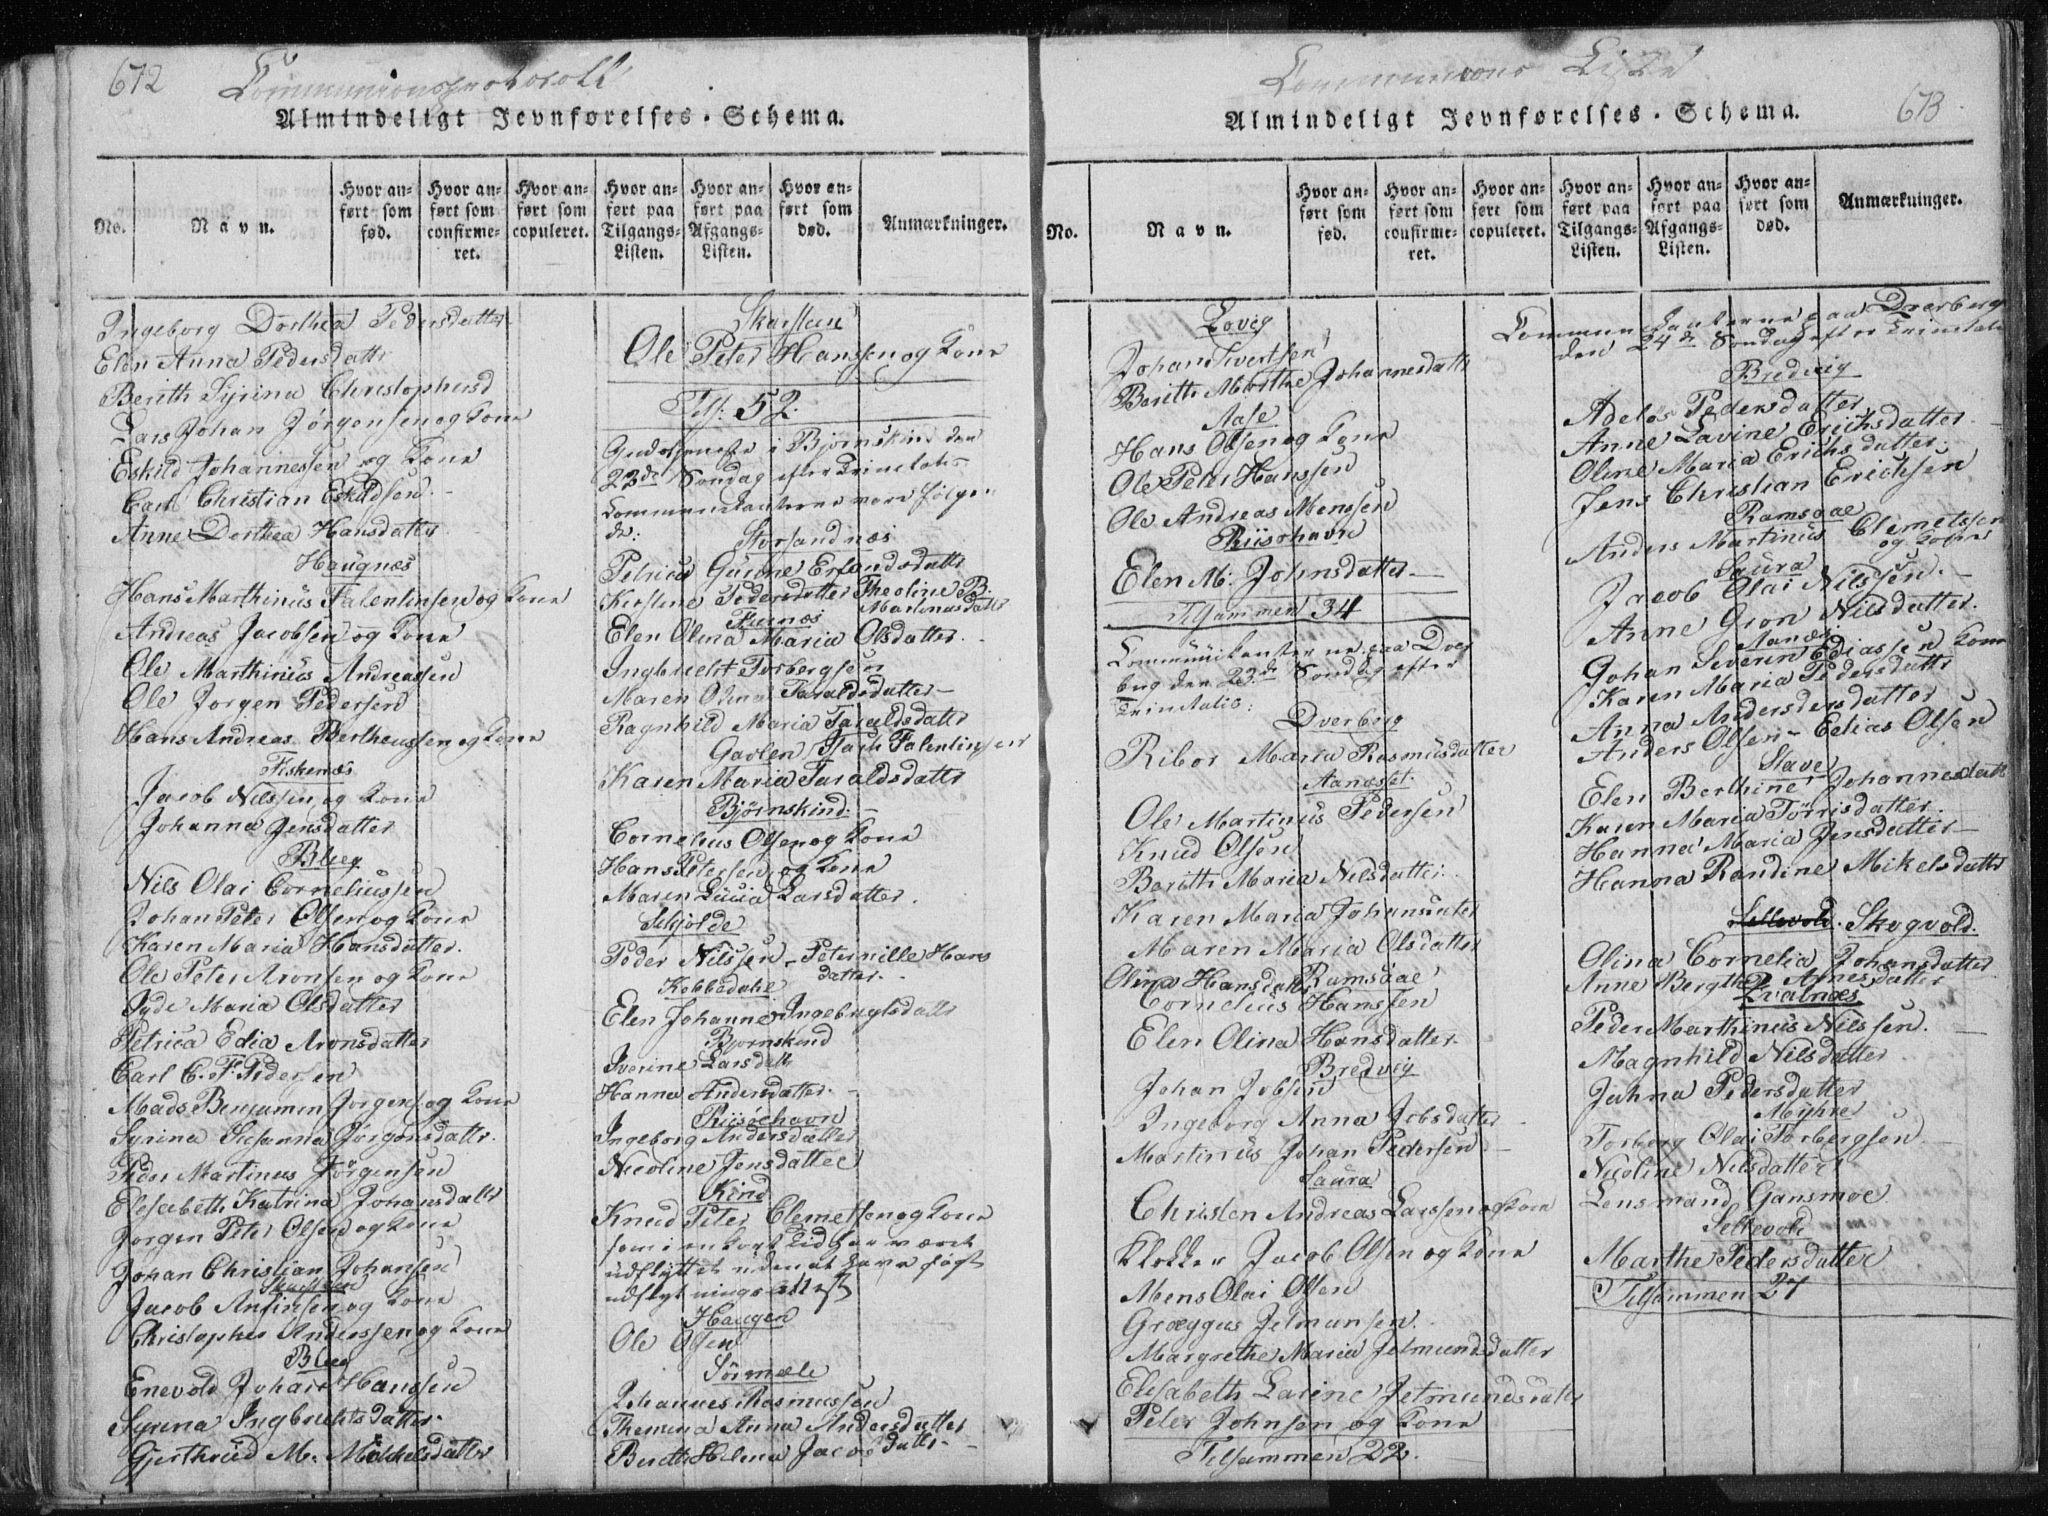 672
Communionsprotokoll
Almindeligt Jevnførelses-Schema.
No.
Navn.
Hvor anført som fød.
Hvor anført som confirmeret.
Hvor anført som copuleret.
Hvor anført paa Tilgangs-Listen.
Hvor anført paa Afgangs-Listen.
Hvor anført som død.
Anmærkninger.
Ingeborg Dorthea Pedersdatter
Elen Anna Pedersdattr
Berith Syrina Christophersd
Lars Johan Jørgensen og Kone
Eskild Johannessen og Kone
Carl Christian Eskildsen
Anne Dorthea Hansdattr
Haugnæs
Hans Marthinus Falentinsen og Kone
Andreas Jacobsen og Kone
Ole Marthinius Andreassen
Ole Jørgen Pedersen
Hans Andreas Bertheussen og Kone
Fiskenæs
Jacob Nilssen og Kone
Johanna Jensdatter
Bleg
Nils Olai Corneliussen
Johan Peter Olsen og Kone
Karen Maria Hansdatter.
Ole Peter Aronsen og Kone
Maria Olsdatter
Petrica Edia Aronsdatter
Carl C. F. Pedersen
Mads Benjamin Jørgens og Kone
Syrina Susanna Jørgensdattr.
Peder Martinus Jørgensen
Elesabeth Katrina Johansdattr
Jørgen Peter Olsen og Kone
Johan Christian Johansen
Skarsteen
Jacob Anfinsen og Kone
Christopher Anderssen og Kone
Bleg
Enevold Johan Hanssen
Syrina Ingbrichtsdatter.
Gjerthrud M. Mekkelsdatter
Skarsteen
Ole Peter Hanssen og Kone
Tils: 52.
Gudstjeneste i Bjørnskind den
22de Søndag efter Trinitatis
Communikanterne vare følgen
de:
Storsandnæs
Petrica Gurine Erlandsdattr
Kirstine Pedersdatter Theoline B. Martinusdattr
Furnæs
Elen Olina Maria Olsdatter.
Ingbricht Torbergsen
Maren Olina Taraldsdatter
Ragnhild Maria Taraldsdattr
Gavlen Falentinsen
Karen Maria Taraldsdattr
Bjørnskind
Cornelius Olsen og Kone
Hans Petersen og Kone
Maren Lucia Larsdatter.
Skjolde
Peder Nilssen - Peternille Hans
datter.
Kobbedalie
Elen Johanne Ingebrigtsdattr
Bjørnskind
Iverine Larsdattr
Hanna Andersdatter
Riisøehavn
Ingeborg Andersdatter
Nicoline Jensdatter
Kind
Knud Peter Clemetsen og Kone
som i en kort tid har været
udflyttet uden at have søgt
udflytnings attest
Haugen
Ole Olsen
Sørmæle
Johannes Rasmussen
Themina Anna Andersdatter
Berith Helena Jacobsdatter
Communions Liste
Almindeligt Jevnførelses-Schema.
673
No.
Navn.
Hvor anført som fød.
Hvor anført som confirmeret.
Hvor anført som copuleret.
Hvor anført paa Tilgangs-Listen.
Hvor anført paa Afgangs-Listen.
Hvor anført som død.
Anmærkninger.
Lovig
Johan Sivertsen
Berith Marthe Johannesdattr
Aase
Hans Olsen og Kone
Ole Peter Hanssen
Ole Andreas Monssen
Riisøhavn
Elen M. Johnsdatter
Tilsammen 34
Communikanterne paa Dver
berg den 23de Søndag efter
Trinitatis:
Dverberg
Ribor Maria Rasmusdatter
Aanæsset
Ole Martinus Pedersen
Knud Olsen
Berith Maria Nilsdatter
Karen Maria Johansdatter
Maren Maria Olsdatter
Olina Hansdatter Ramsaae
Cornelius Hanssen
Elen Olina Hansdatter
Bredvig
Johan Jobsen
Ingeborg Anna Jobsdatter
Martinus Johan Pedersen
Saura
Christen Andreas Larssen og Kone
Klokker Jacob Olsen og Kone
Mons Olai Olsen
Græggus Jetmunsen.
Margrethe Maria Jetmundsdatter
Elisabeth Larine Jetmundsdattr
Peter Johnsen og Kone
Tilsammen 22.
Communikanterne paa Dverberg
den 24de Søndag efter Trinitatis
Bredvig
Adelos Pedersdatter
Anne Lavine Erichsdatter
Oline Maria Erichsdatter.
Jens Christian Erichsen
Ramsaae
Anders Martinus Clemetssen
og Kone
Saura
Jacob Olai Nilssen.
Anne Gron Nilsdatter.
Aanæs
Johan Severin Ediassen Kone
Karen Maria Pedersdattr
Anna Andersdersdatter
Anders Olsen - Edias Olsen
Stave
Elen Berthine Johannesdattr
Karen Maria Törrisdatter.
Hanna Maria Jensdatter
Hanna Randine Mikelsdattr
Sellevold. Skogvold.
Olina Cornelia Johansdatter
Anne Bergthe Arnesdatter
Qvalnæs
Peder Marthinus Nilssen.
Magnhild Nilsdatter
Jahna Pedersdatter
Myhre
Torberg Olai Torbergsen
Nicoline Nilsdatter
Lensmand Gansmoe
Sellevold
Marthe Pedersdatter
Tilsammen 27